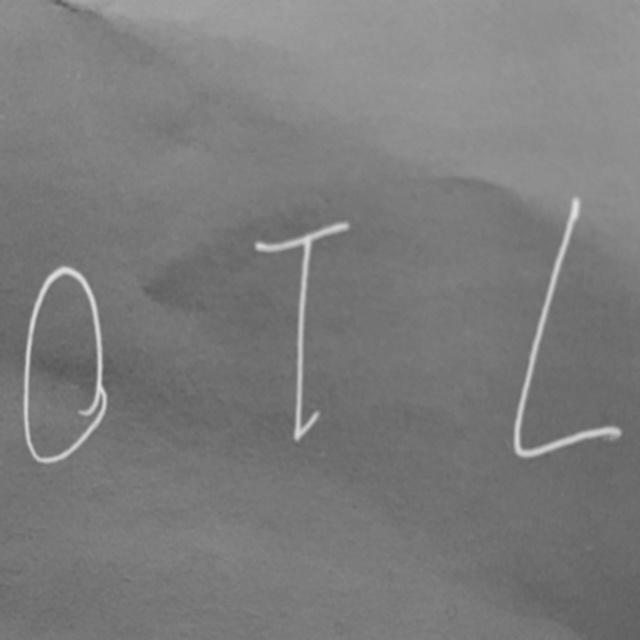 O T L